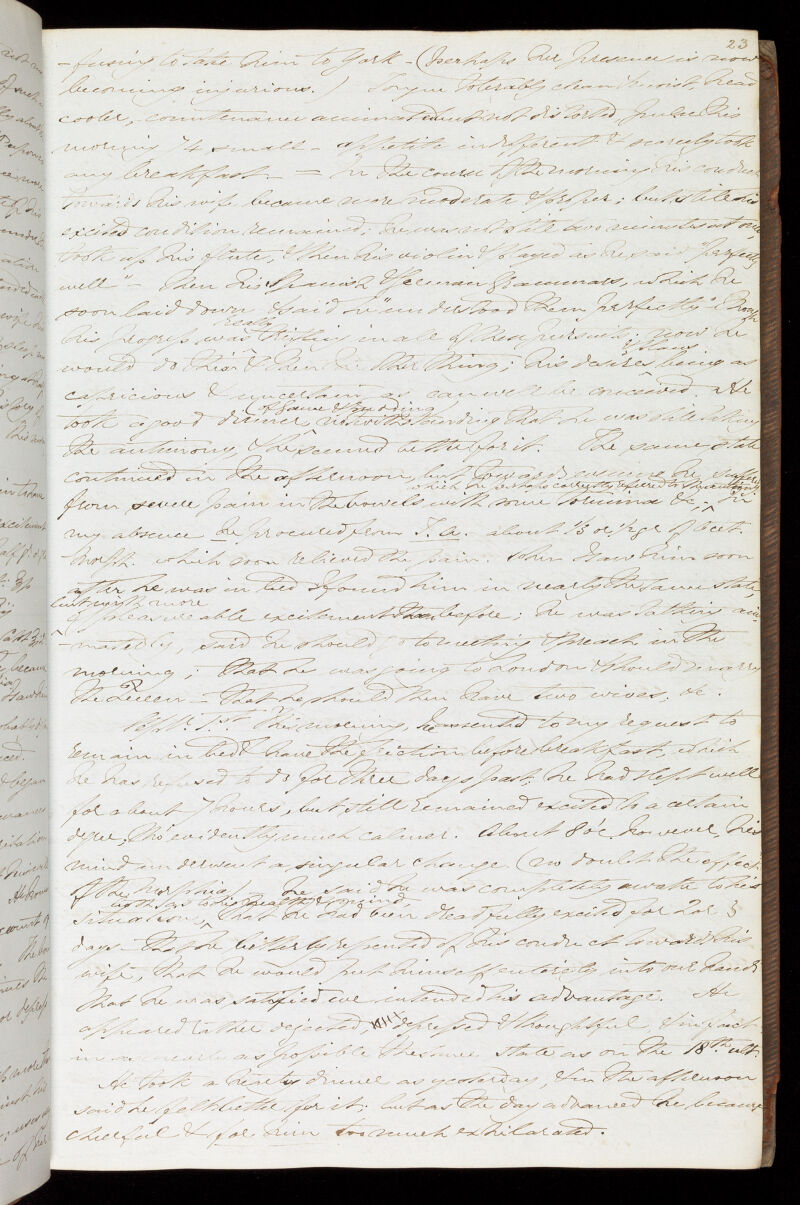 23
-fusing to take him to York - (perhaps her presence is now
becoming injurious.) Tongue tolerably clean & moist, head
cooler, countenance animated but not distorted pulse this
morning 74 small - appetite indifferent & scarcely took
any breakfast. - = In the course of the morning his conduct
towards his wife became more moderate & proper; but still his
excited condition remained; he was not still two minutes at once,
took up his flute, & then his violin & played as he said "perfectly
well" - then his Spanish & German Grammars, which he
soon laid down & said he "understood them perfectly" though
his progress was really trifling in all of these pursuits; now he
would do this & then the other thing; his desires & plans being as
capricious & uncertain as can well be conceived. He
took a good dinner of fowl & pudding notwithstanding that he was still taking
the antimony, & he seemed better for it. The same state
continued in the afternoon, but towards evening he suffered
from severe pain in the bowels with some tormina &c, which he perhaps correctly referred to the antimony. In
my absence he procured from T.A. about 1/3 or 1/2 gr of acet.
Morph. which soon relieved the pain. When I saw him soon
after he was in bed & found him in nearly the same state
but with more
pleasureable excitement than before; he was talking ani-
-matedly, said he should go to meeting & preach in the
morning; that he was going to London & should marry
the Queen - that he should then have two wives; &c.
Septr. 1st. This morning, he assented to my request to
remain in bed & have the friction before breakfast, which
he has refused to do for three days past; he had slept well
for about 7 hours, but still remained excited to a certain
degree, tho' evidently much calmer. About 8 o'c. however, his
mind underwent a singular change (no doubt the effect
of the morphia) he said he was completely awake to his
situation, both as to his health & mind, that he had been dreadfully excited for 2 or 3
days - that he bitterly repented of his conduct towards his
wife, that he would put himself entirely into our hands
that he was satisfied we intended his advantage. He
appeared rather dejected, depressed & thoughtful, & in fact
in as nearly as possible the same state as on the 18th ult.
He took a hearty dinner as yesterday, & in the afternoon
said he felt better for it; but as the day advanced he became
cheerful & for him too much exhilarated.